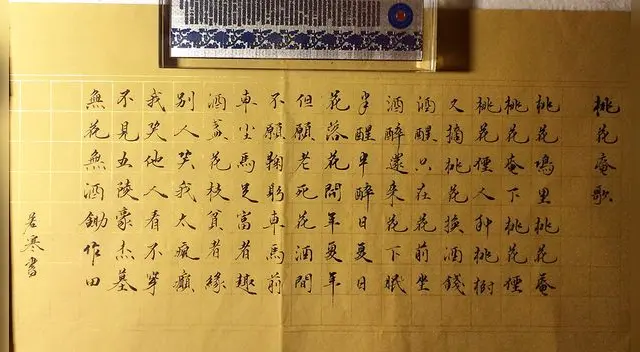 桃花庵歌
桃花塢里桃花菴
桃花菴下桃花僊
桃花僊人种桃樹
又摘桃花換酒錢
酒醒只在花前坐
酒醉還來花下眠
半醒半醉日复日
花落花開年复年
但願老死花酒間
不願鞠躬車馬前
車尘馬足富者趣
酒盞花枝貧者緣
別人笑我太瘋癲
我笑他人看不穿
不見五陵豪杰墓
無花無酒鋤作田
寒書